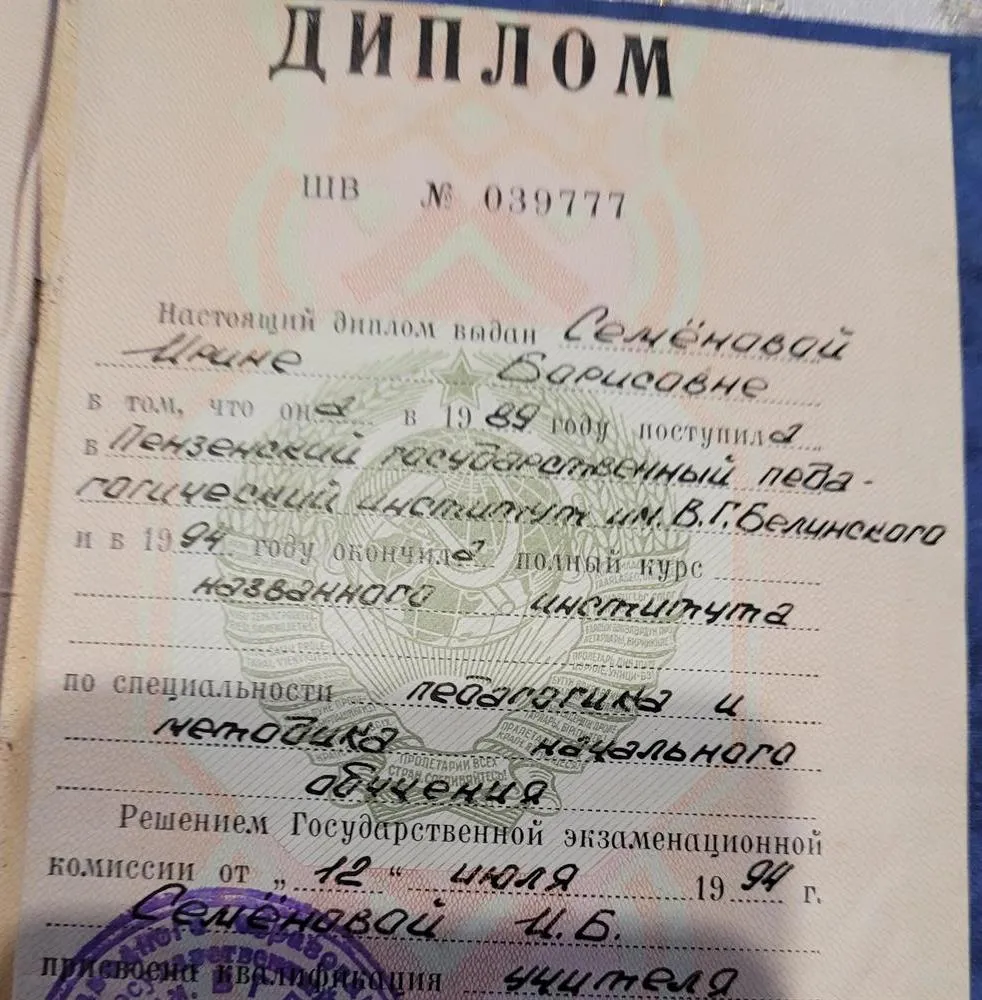 ДИПЛОМ
ШВ № 039777
Настоящий диплом выдан Семёновой
Ирине Борисовне
в том, что она в 1989 году поступила
в Пензенский государственный педа-
гогический институт им. В.Г. Белинского
и в 1994 году окончила полный курс
названного института
по специальности педагогика и
методика начального
ПРОЛЕТАРИИ ВСЕХ
СТРАН, СОЕДИНЯЙТЕСЬ!
обучения
Решением Государственной экзаменационной
комиссии от „12“ июля 1994 г.
Семёновой И.Б.
присвоена квалификация учителя